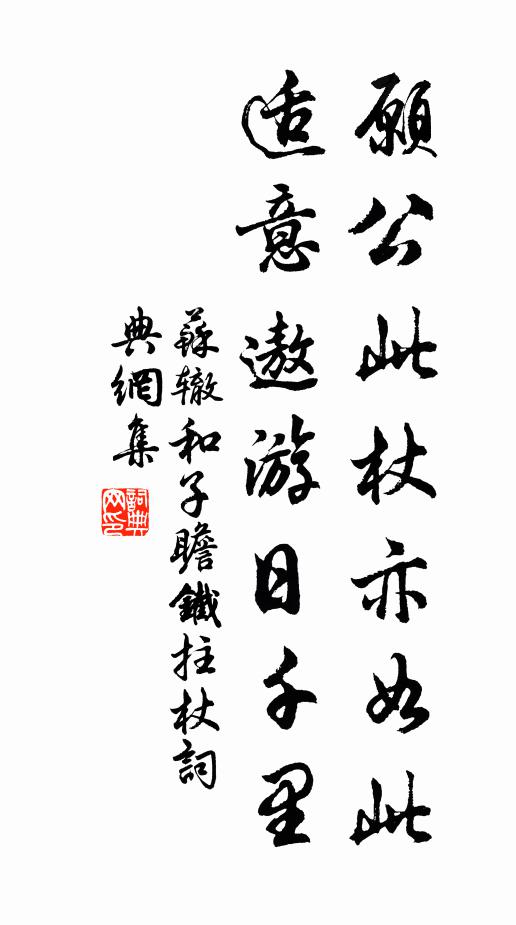 願公此杖亦如此
适意遨游日千里
蘇辙和子瞻鐵拄杖詞
典網集
詞典網印